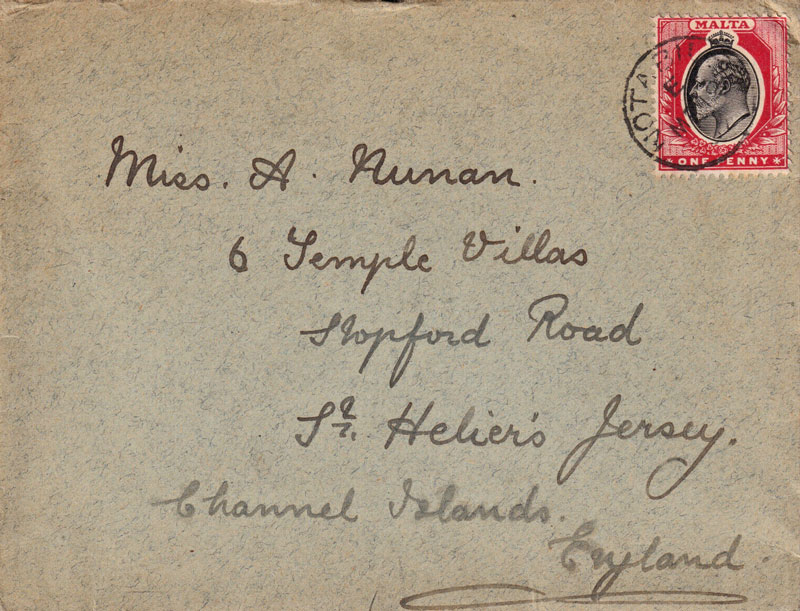 MALTA
ONE PENNY
Miss. A. Nunan.
6 Temple Villas
Stopford Road
St. Helier's Jersey.
Channel Islands.
England.